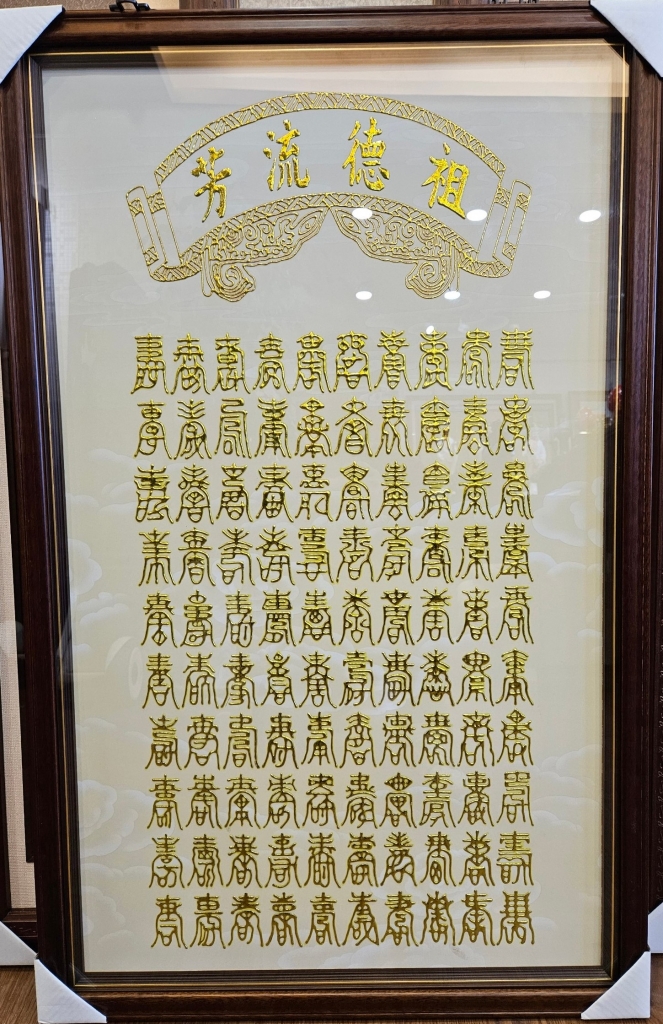 祖德流芳
壽壽壽壽壽壽壽壽壽壽
壽壽壽壽壽壽壽壽壽壽
壽壽壽壽壽壽壽壽壽壽
壽壽壽壽壽壽壽壽壽壽
壽壽壽壽壽壽壽壽壽壽
壽壽壽壽壽壽壽壽壽壽
壽壽壽壽壽壽壽壽壽壽
壽壽壽壽壽壽壽壽壽壽
壽壽壽壽壽壽壽壽壽壽
壽壽壽壽壽壽壽壽壽壽